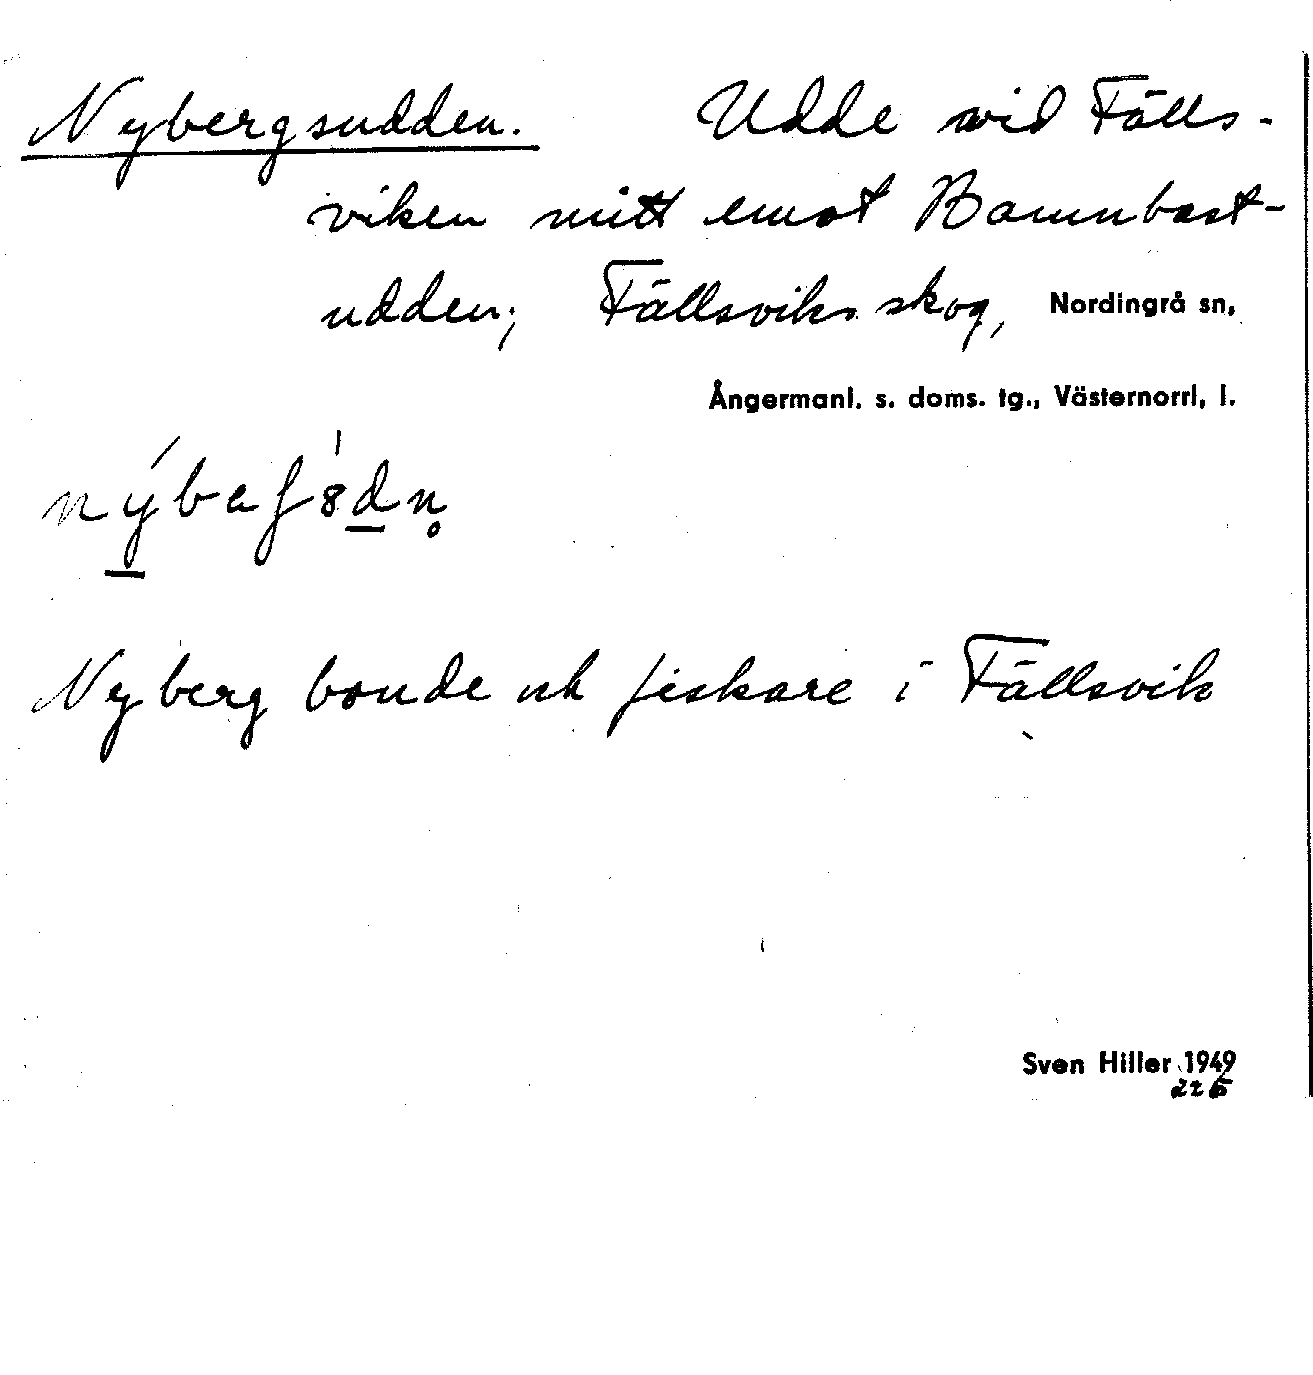 Nybergsudden. Udde vid Fälls-
viken mitt emot Bammbast-
udden; Fällsviks skog, Nordingrå sn,
Ångermanl. s. doms. tg., Västernorrl. l.
Nyberg bonde och fiskare i Fällsvik
Sven Hiller 1949